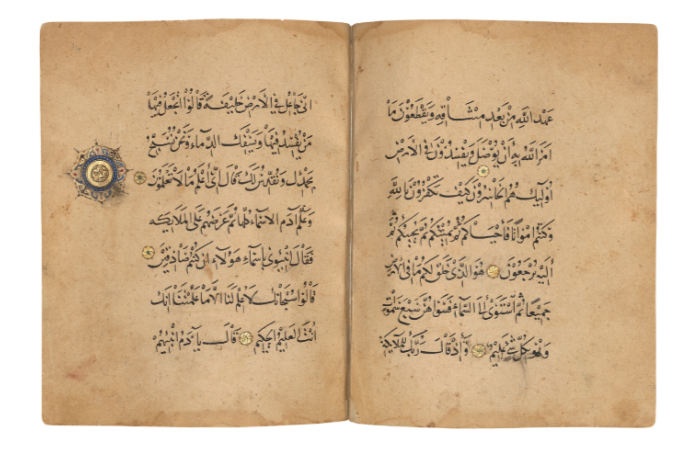 عَهْدَ اللهِ مِنْ بَعْدِ مِيْثَاقِهِ وَيَقْطَعُوْنَ مَا
اَمَرَ اللهُ بِهِ اَنْ يُوْصَلَ وَيُفْسِدُوْنَ فِي الْاَرْضِ
اُولَيِكَ هُمُ الْخَاسِرُوْنَ كَيْفَ تَكْفُرُوْنَ بِاللهِ
وَكُنْتُمْ اَمْوَاتًا فَاَحْيَاكُمْ ثُمَّ يُمِيْتُكُمْ ثُمَّ يُحْيِيْكُمْ ثُمَّ
اِلَيْهِ تُرْجَعُوْنَ هُوَ الَّذِيْ خَلَقَ لَكُمْ مَا فِي الْاَرْضِ
جَمِيْعًا ثُمَّ اسْتَوَى اِلَى السَّمَاءِ فَسَوَّاهُنَّ سَبْعَ سَمَوَاتٍ
وَهُوَ بِكُلِّ شَيْءٍ عَلِيْمٌ وَاِذْ قَالَ رَبُّكَ لِلْمَلَايِكَةِ
اِنِّيْ جَاعِلٌ فِي الْاَرْضِ خَلِيْفَةً قَالُوْا اَتَجْعَلُ فِيْهَا
مَنْ يُفْسِدُ فِيْهَا وَيَسْفِكُ الدِّمَاءَ وَنَحْنُ نُسَبِّحُ
بِحَمْدِكَ وَنُقَدِّسُ لَكَ قَالَ اِنِّيْ اَعْلَمُ مَا لَا تَعْلَمُوْنَ
وَعَلَّمَ اٰدَمَ الْاَسْمَاءَ كُلَّهَا ثُمَّ عَرَضَهُمْ عَلَى الْمَلَايِكَهِ
فَقَالَ اَنْبِيُوْنِيْ بِاَسْمَاءِ هَوُلَاءِ اِنْ كُنْتُمْ صَادِقِيْنَ
قَالُوْا سُبْحَانَكَ لَا عِلْمَ لَنَا اِلَّا مَا عَلَّمْتَنَا اِنَّكَ
اَنْتَ الْعَلِيْمُ الْحَكِيْمُ قَالَ يَا اٰدَمُ اَنْبِيْهُمْ